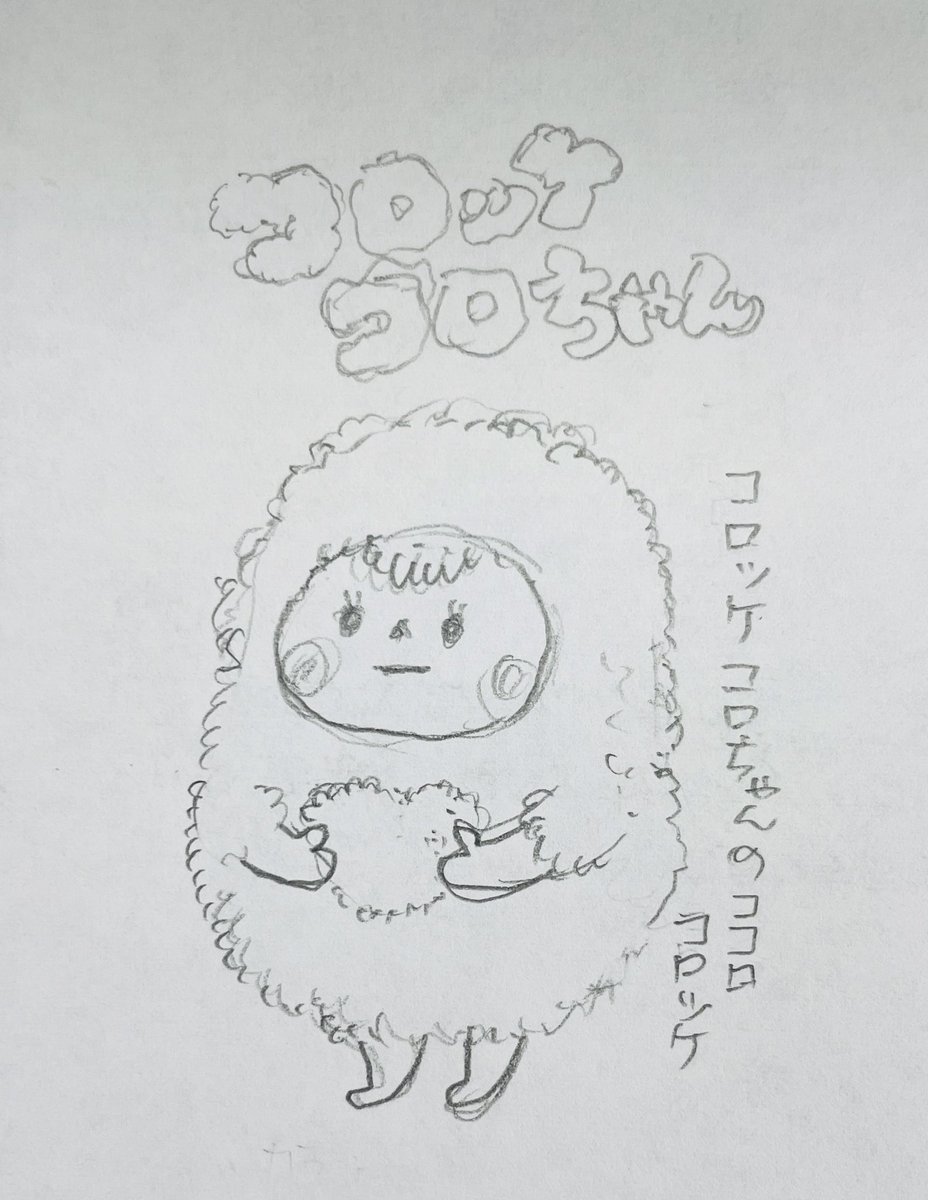 コロッケ
コロちゃん
コロッケ コロちゃんのココロ
コロッケ